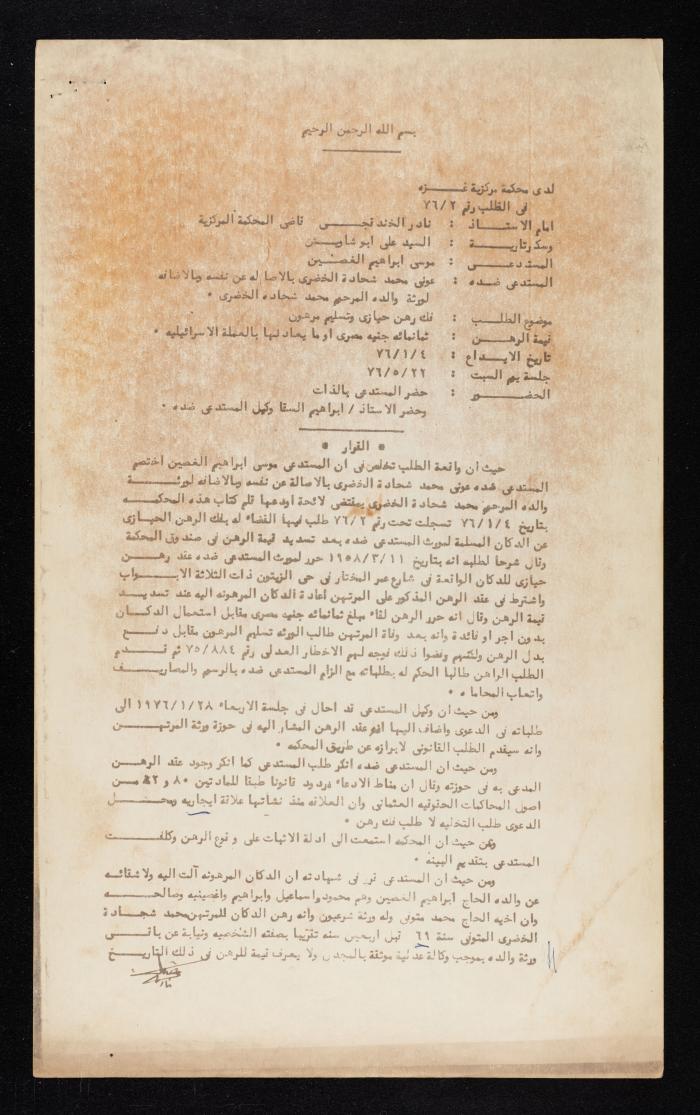 بسم الله الرحمن الرحيم
لدى محكمة مركزية غـــزه
فى الطلب رقم ٧٦/٢
امام الاستـــاذ : نادر الخندقجـــى قاضى المحكمة المركزية
وسكرتاريـــة : السيد على ابو شاويـــش
المستدعـــى : موسى ابراهيم الغصـــين
المستدعى ضده : عونى محمد شحادة الخضرى بالاصالة عن نفسه وبالاضافه
لورثة والده المرحوم محمد شحاده الخضرى .
موضوع الطلـــب : فك رهن حيازى وتسليم مرهون
قيمة الرهـــن : ثمانمائه جنيه مصرى او ما يعادلها بالعملة الاسرائيليه .
تاريخ الايـــداع : ٧٦/١/٤
جلسة يوم السبت : ٧٦/٥/٢٢
الحضـــور : حضر المستدعى بالذات
وحضر الاستاذ / ابراهيم السقا وكيل المستدعى ضده .
* القرار *
حيث ان واقعة الطلب تخلص فى ان المستدعى موسى ابراهيم الغصين اختصم
المستدعى ضده عونى محمد شحادة الخضرى بالاصالة عن نفسه وبالاضافه لورثـــة
والده المرحوم محمد شحادة الخضرى بمقتضى لائحة اودعها قلم كتاب هذه المحكمـــه
بتاريخ ٧٦/١/٤ تسجلت تحت رقم ٧٦/٢ طلب فيها القضاء له بفك الرهن الحيـازى
عن الدكان المسلمة لمورث المستدعى ضده بعد تسديد قيمة الرهن فى صندوق المحكمة
وقال شرحا لطلبه انه بتاريخ ١٩٥٨/٣/١١ حرر لمورث المستدعى ضده عقد رهـــن
حيازى للدكان الواقعة فى شارع عمر المختار فى حى الزيتون ذات الثلاثة الابـــواب
واشترط فى عقد الرهن المذكور على المرتهن اعادة الدكان المرهونه اليه عند تسديـــد
قيمة الرهن وقال انه حرر الرهن لقاء مبلغ ثمانمائه جنيه مصرى مقابل استعمال الدكـــان
بدون اجر او فائدة وانه بعد وفاة المرتهن طالب الورثه تسليم المرهون مقابل دفـــع
بدل الرهن ولكنهم رفضوا ذلك فوجه لهم الاخطار العدلى رقم ٧٥/٨٨٤ ثم قـــدم
الطلب الراهن طالبا الحكم له بطلباته مع الزام المستدعى ضده بالرسوم والمصاريـــف
واتعاب المحاماه .
ومن حيث ان وكيل المستدعى قد احال فى جلسة الاربعاء ١٩٧٦/١/٢٨ الى
طلباته فى الدعوى واضاف اليها ان عقد الرهن المشار اليه فى حوزة ورثة المرتهـــن
وانه سيقدم الطلب القانونى لابرازه عن طريق المحكمه .
ومن حيث ان المستدعى ضده انكر طلب المستدعى كما انكر وجود عقد الرهـــن
المدعى به فى حوزته وقال ان مناط الادعاء مردود قانونا طبقا للمادتين ٨٠ و ٨٢ مـــن
اصول المحاكمات الحقوقيه العثمانى وان العلاقه منذ نشأتها علاقة ايجاريه ومحـــل
الدعوى طلب التخليه لا طلب فك رهن .
ومن حيث ان المحكمه استمعت الى ادلة الاثبات على وقوع الرهن وكلفـــت
المستدعى بتقديم البينه .
ومن حيث ان المستدعى قرر فى شهادته ان الدكان المرهونه آلت اليه ولاشقائـــه
عن والده الحاج ابراهيم الغصين وهم محمود واسماعيل وابراهيم وصالحـــه
وان اخيه الحاج محمد متوفى وله ورثة شرعيون وانه رهن الدكان للمرتهن محمد شحـــادة
الخضرى المتوفى سنة ٦٩ قبل اربعين سنه تقريبا بصفته الشخصيه ونيابة عن باقـــى
ورثة والده بموجب وكالة عدلية موثقة بالمجدل ولا يعرف قيمة للرهن فى ذلك التاريـــخ